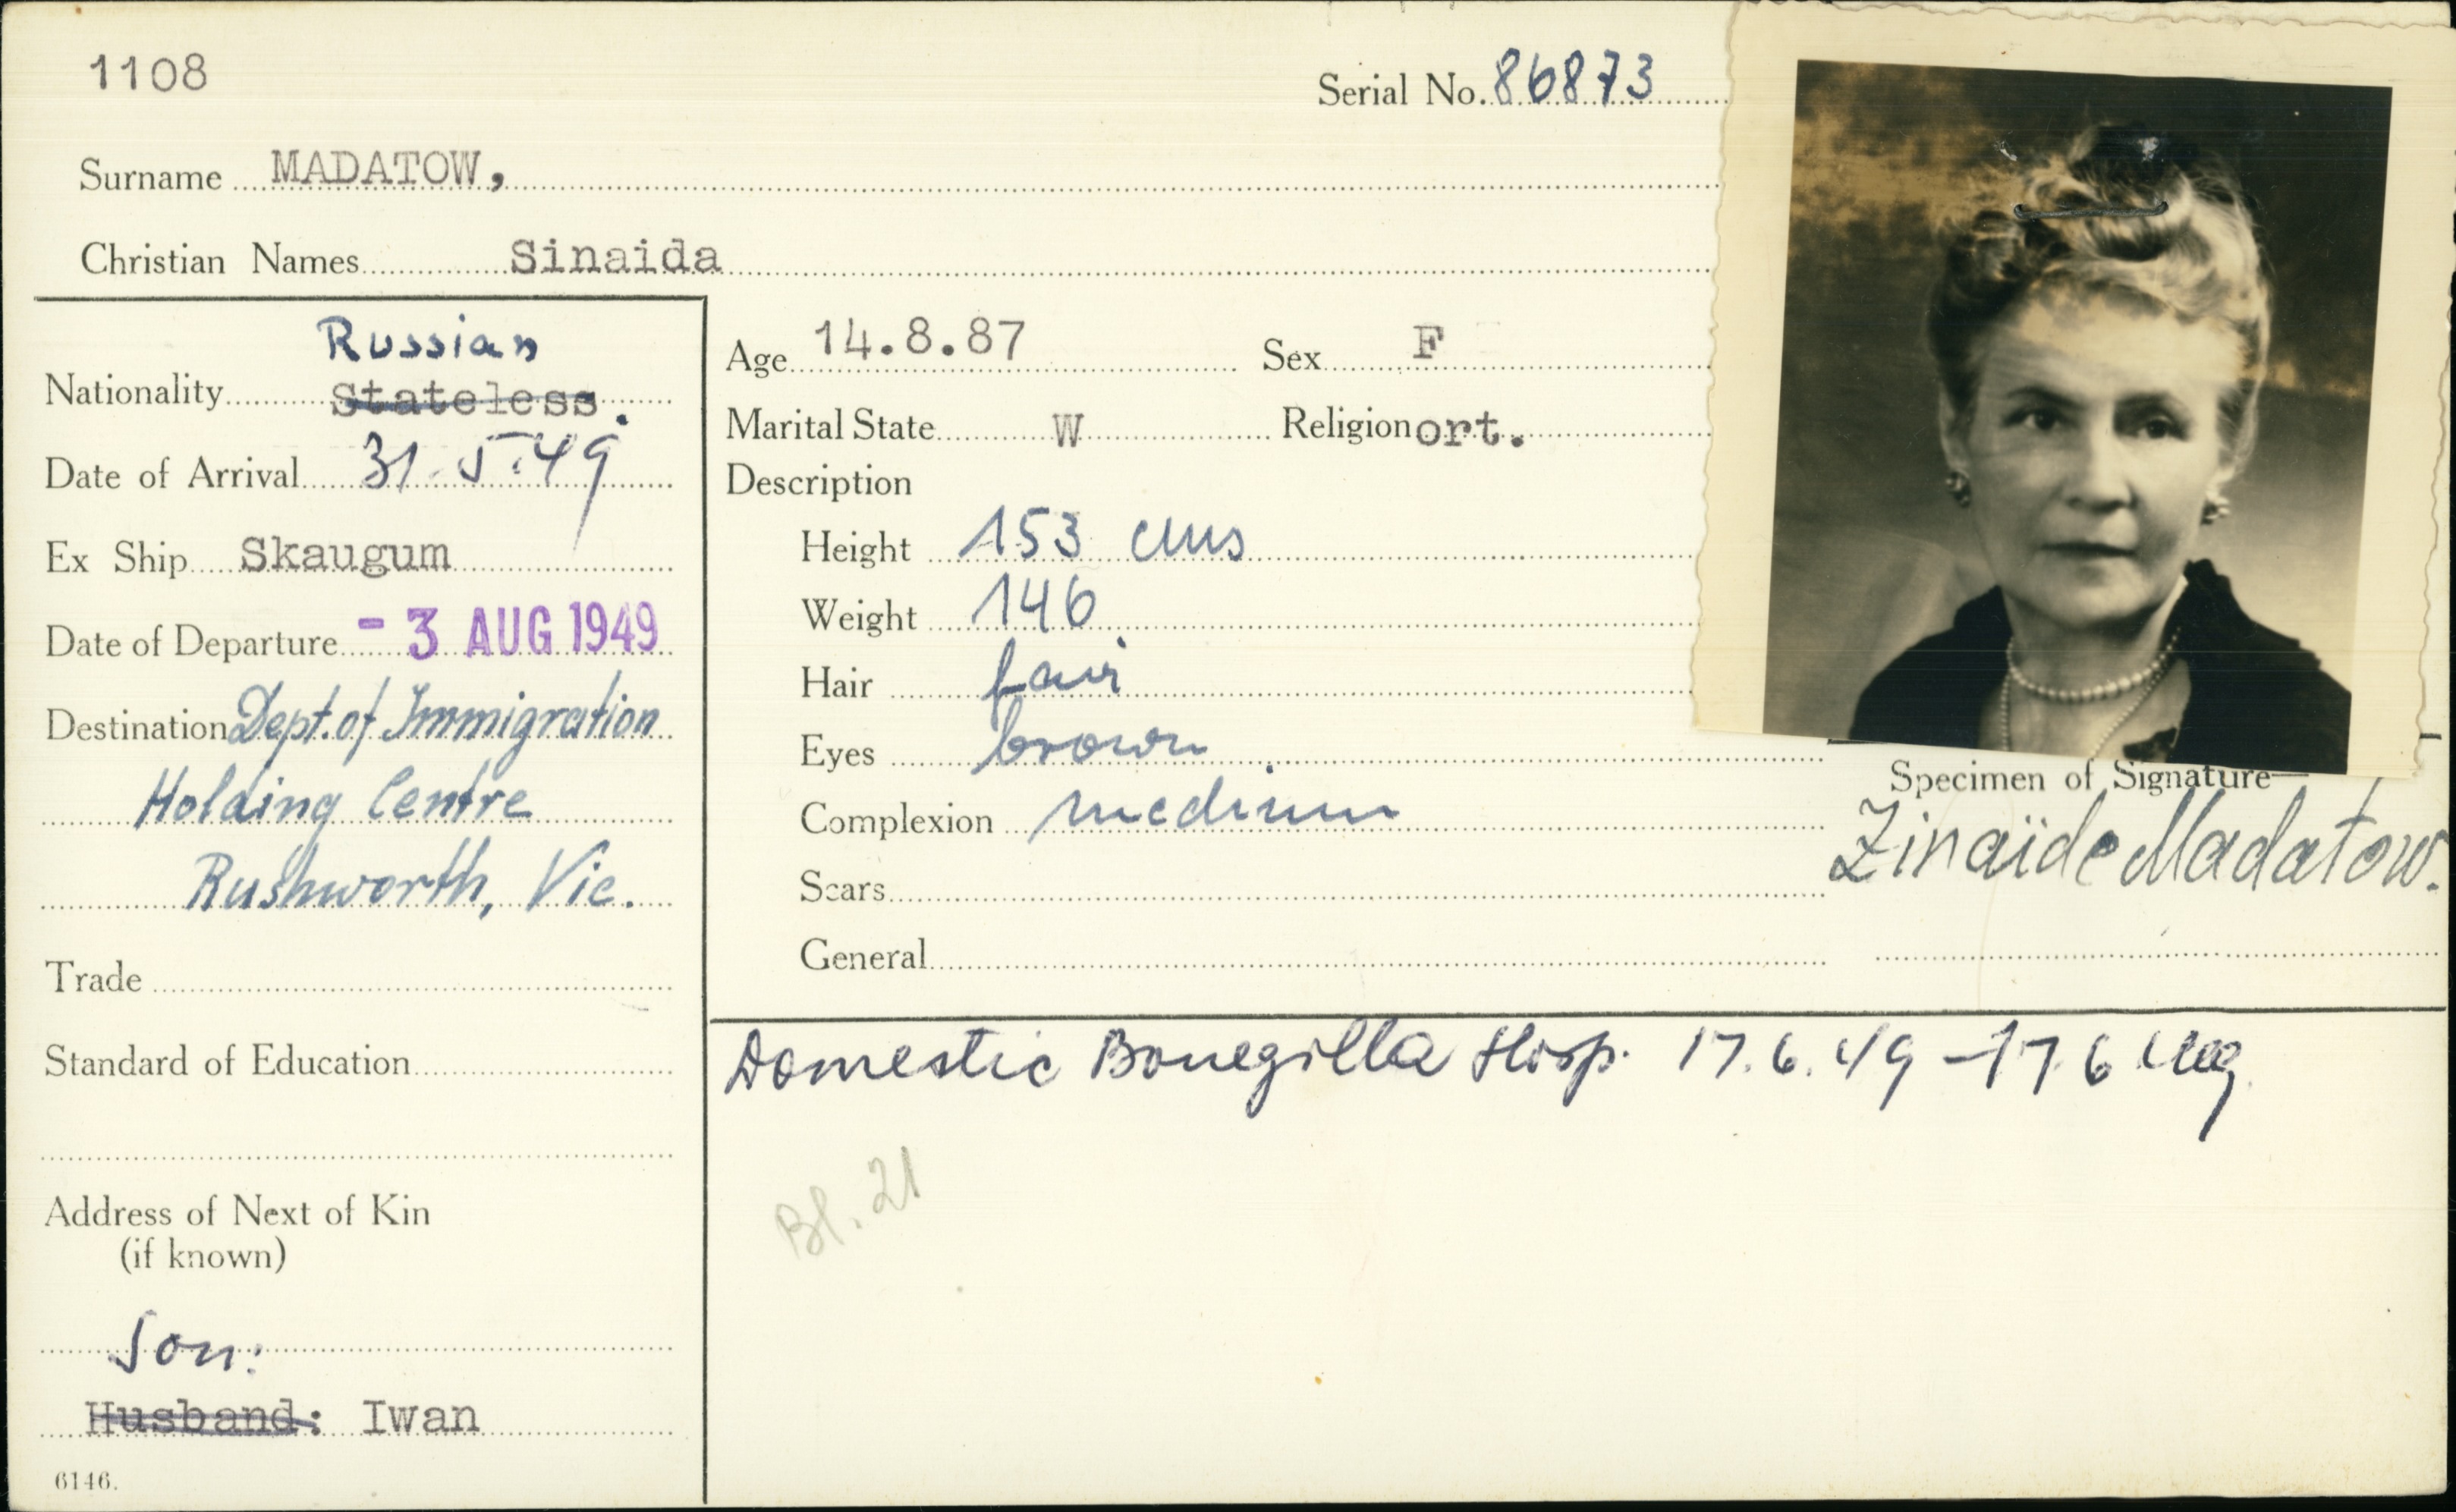 1108
Serial No. 86873
Surname MADATOW,
Christian Names Sinaida
Russian
Nationality Stateless.
Date of Arrival 31.5.49
Ex Ship Skaugum
Date of Departure - 3 AUG 1949
Destination Dept. of Immigration
Holding Centre
Rushworth, Vic.
Trade
Standard of Education
Address of Next of Kin
(if known)
Son:
Husband: Iwan
6146.
Age 14.8.87 Sex F
Marital State W Religion ort.
Description
Height 153 cms
Weight 146
Hair fair
Eyes brown
Complexion medium
Scars
General
Specimen of Signature
Zinaïde Madatow.
Domestic Bonegilla Hosp. 17.6.49 - 17.6
Bl. 21